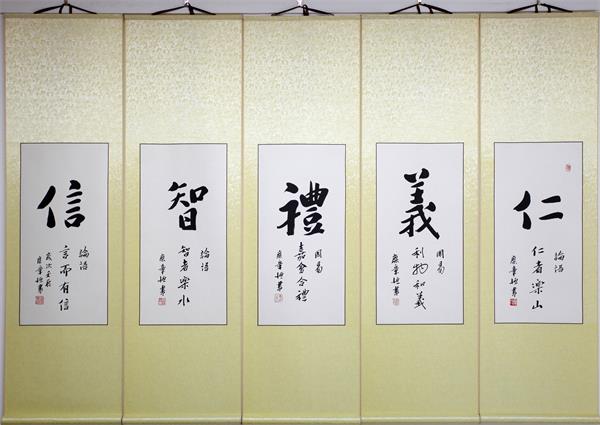 仁
論語
仁者樂山
義
周易
利物和義
禮
周易
嘉會合禮
智
論語
智者樂水
信
論語
言而有信
歲次